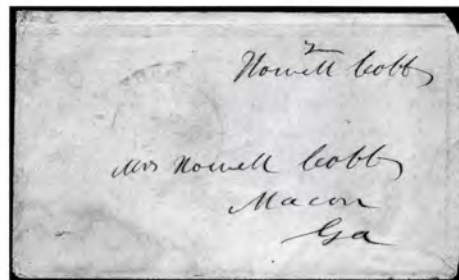 Howell Cobb
Mrs Howell Cobb
Macon
Ga